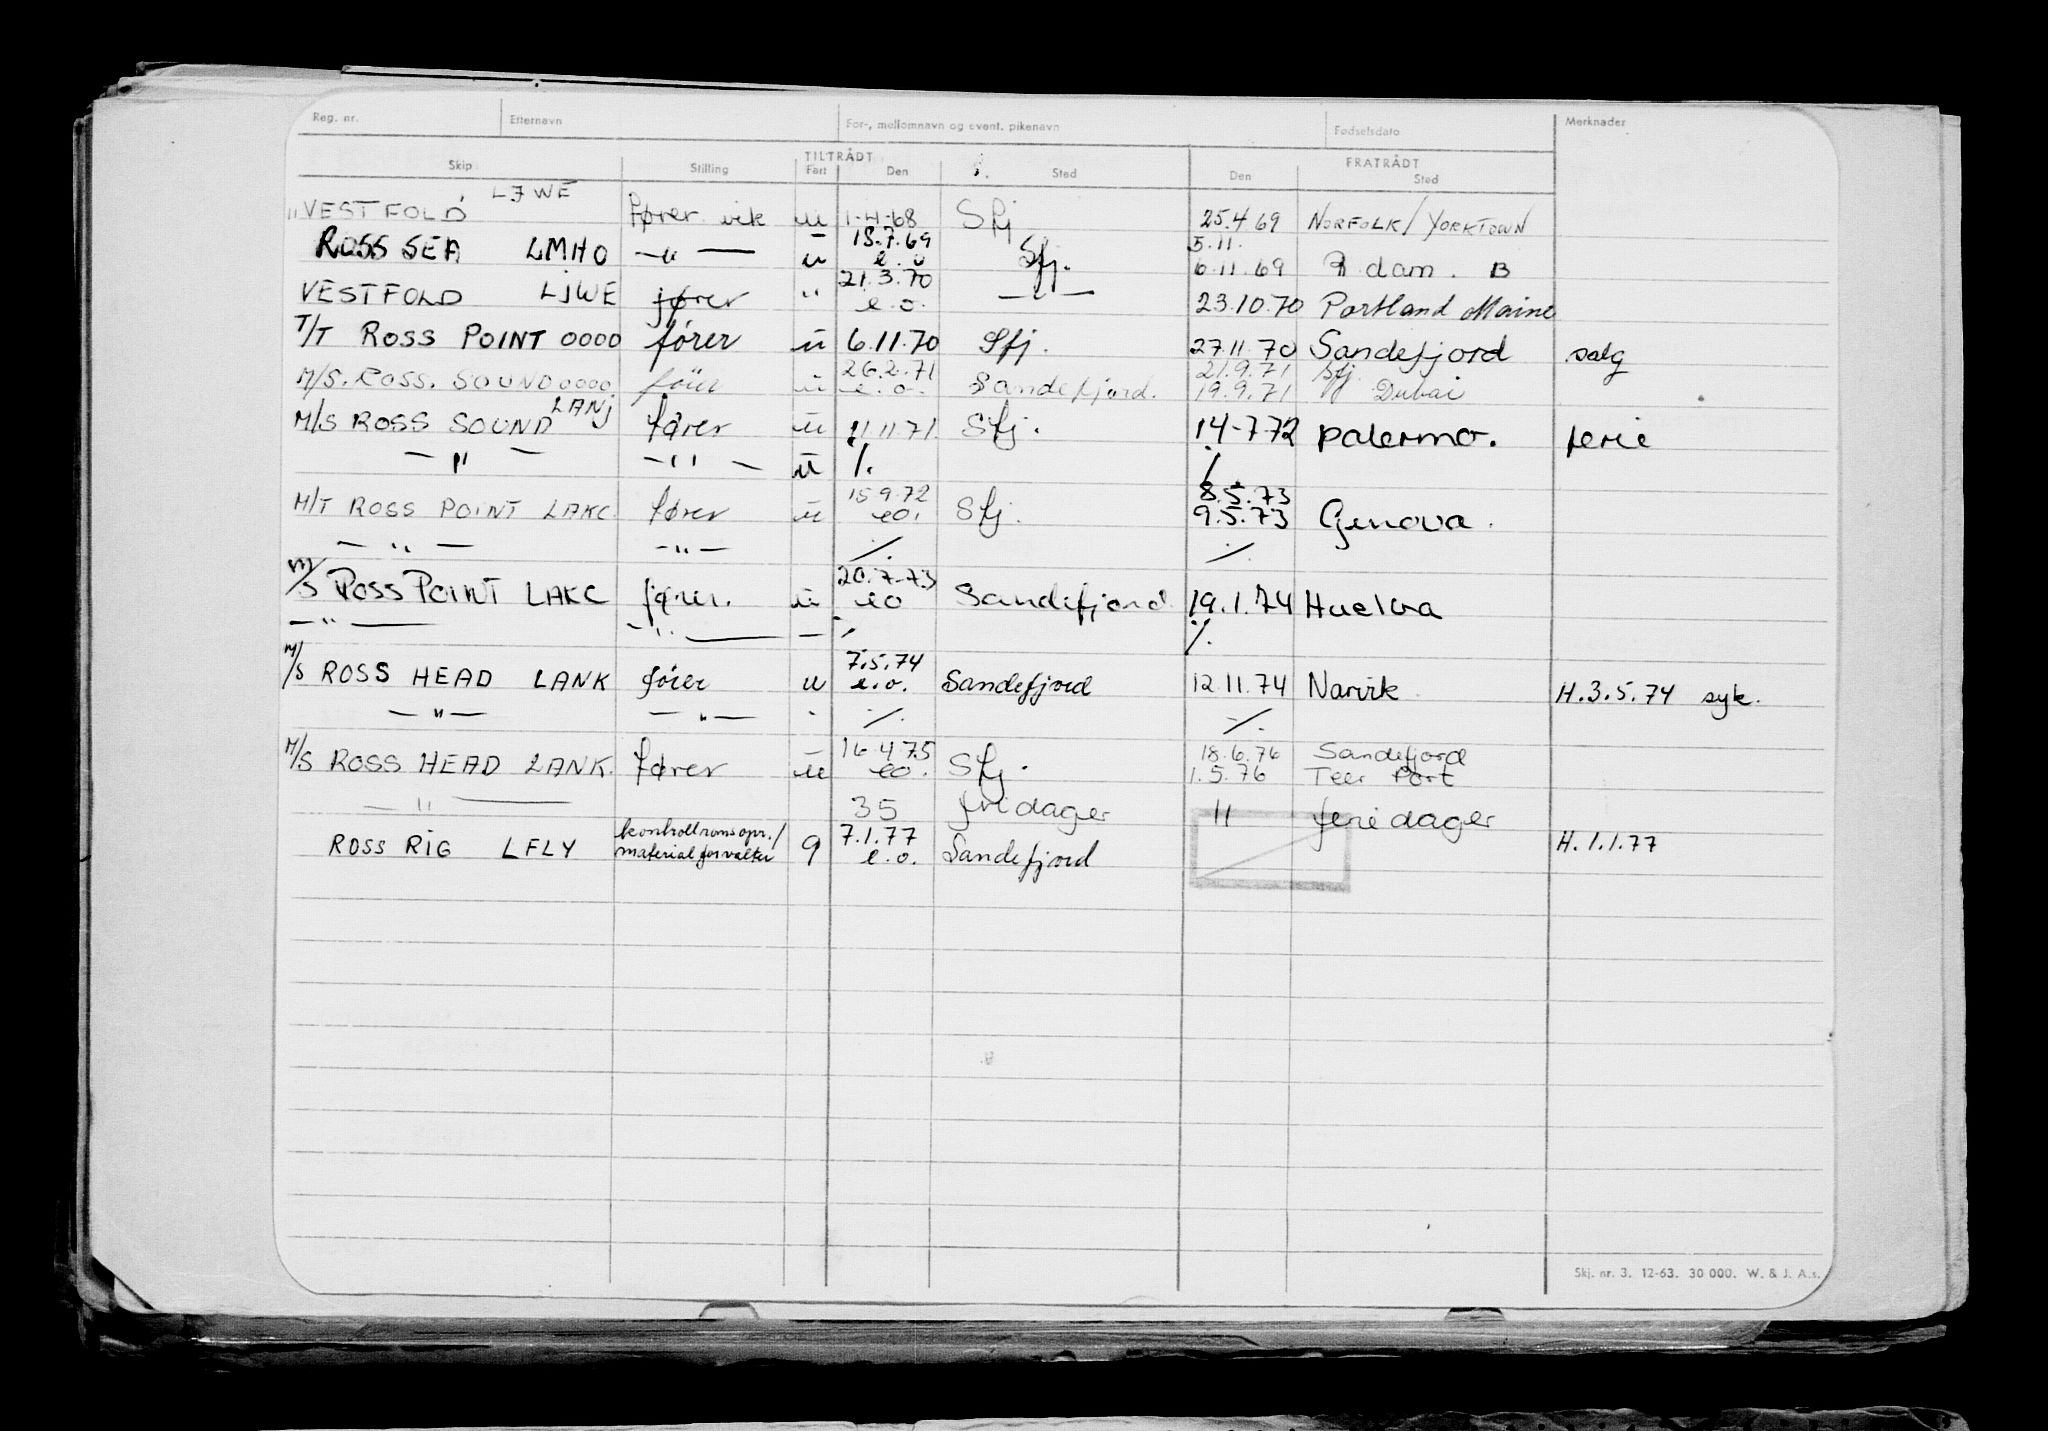 Reg. nr. Etternavn For-, mellomnavn og event. pikenavn Fødselsdato Merknader
TILTRÅDT FRATRÅDT
Skip Stilling Fart Den Sted Den Sted
LJWE
" VESTFOLD fører vik u 1-4-68 Sfj 25.4 69 NORFOLK / YORKTOWN
18.7.69 5.11.
ROSS SEA LMHO —"— u e.o Sfj. 6.11.69 R dam. B
21.3.70
VESTFOLD LJWE fører " e.o. —"— 23.10.70 Portland Maine
T/T ROSS POINT OOOO fører u 6.11.70 Sfj. 27.11.70 Sandefjord salg
26.2.71 21.9.71 Sfj.
M/S. ROSS. SOUND OOOO fører u e.o. Sandefjord. 19.9.71 Dubai
LANJ
M/S ROSS SOUND fører u 11.11.71 Sfj. 14-7 72 Palermo. ferie
—"— —"— u ./. ./.
15 9.72 8.5.73
M/T ROSS POINT LAKC fører u eo. Sfj. 9.5.73 Genova.
—"— —"— ./. ./.
20.7-73
M/S ROSS POINT LAKC fører. u eo Sandefjord 19.1.74 Huelva
—"— —"— — ./. ./.
7.5.74
M/S ROSS HEAD LANK fører u e.o. Sandefjord 12.11.74 Narvik H.3.5.74 syk.
—"— —"— - ./. ./.
16.4 75 18.6.76 Sandefjord
M/S ROSS HEAD LANK. fører u eo. Sfj. 1.5.76 Teer Port
—"— 35 fridager 11 feriedager
kontrollromsopr./ 7.1.77
ROSS RIG LFLY materialforvalter 9 e.o. Sandefjord H.1.1.77
Skj. nr. 3. 12-63. 30 000. W. & J. A.s.